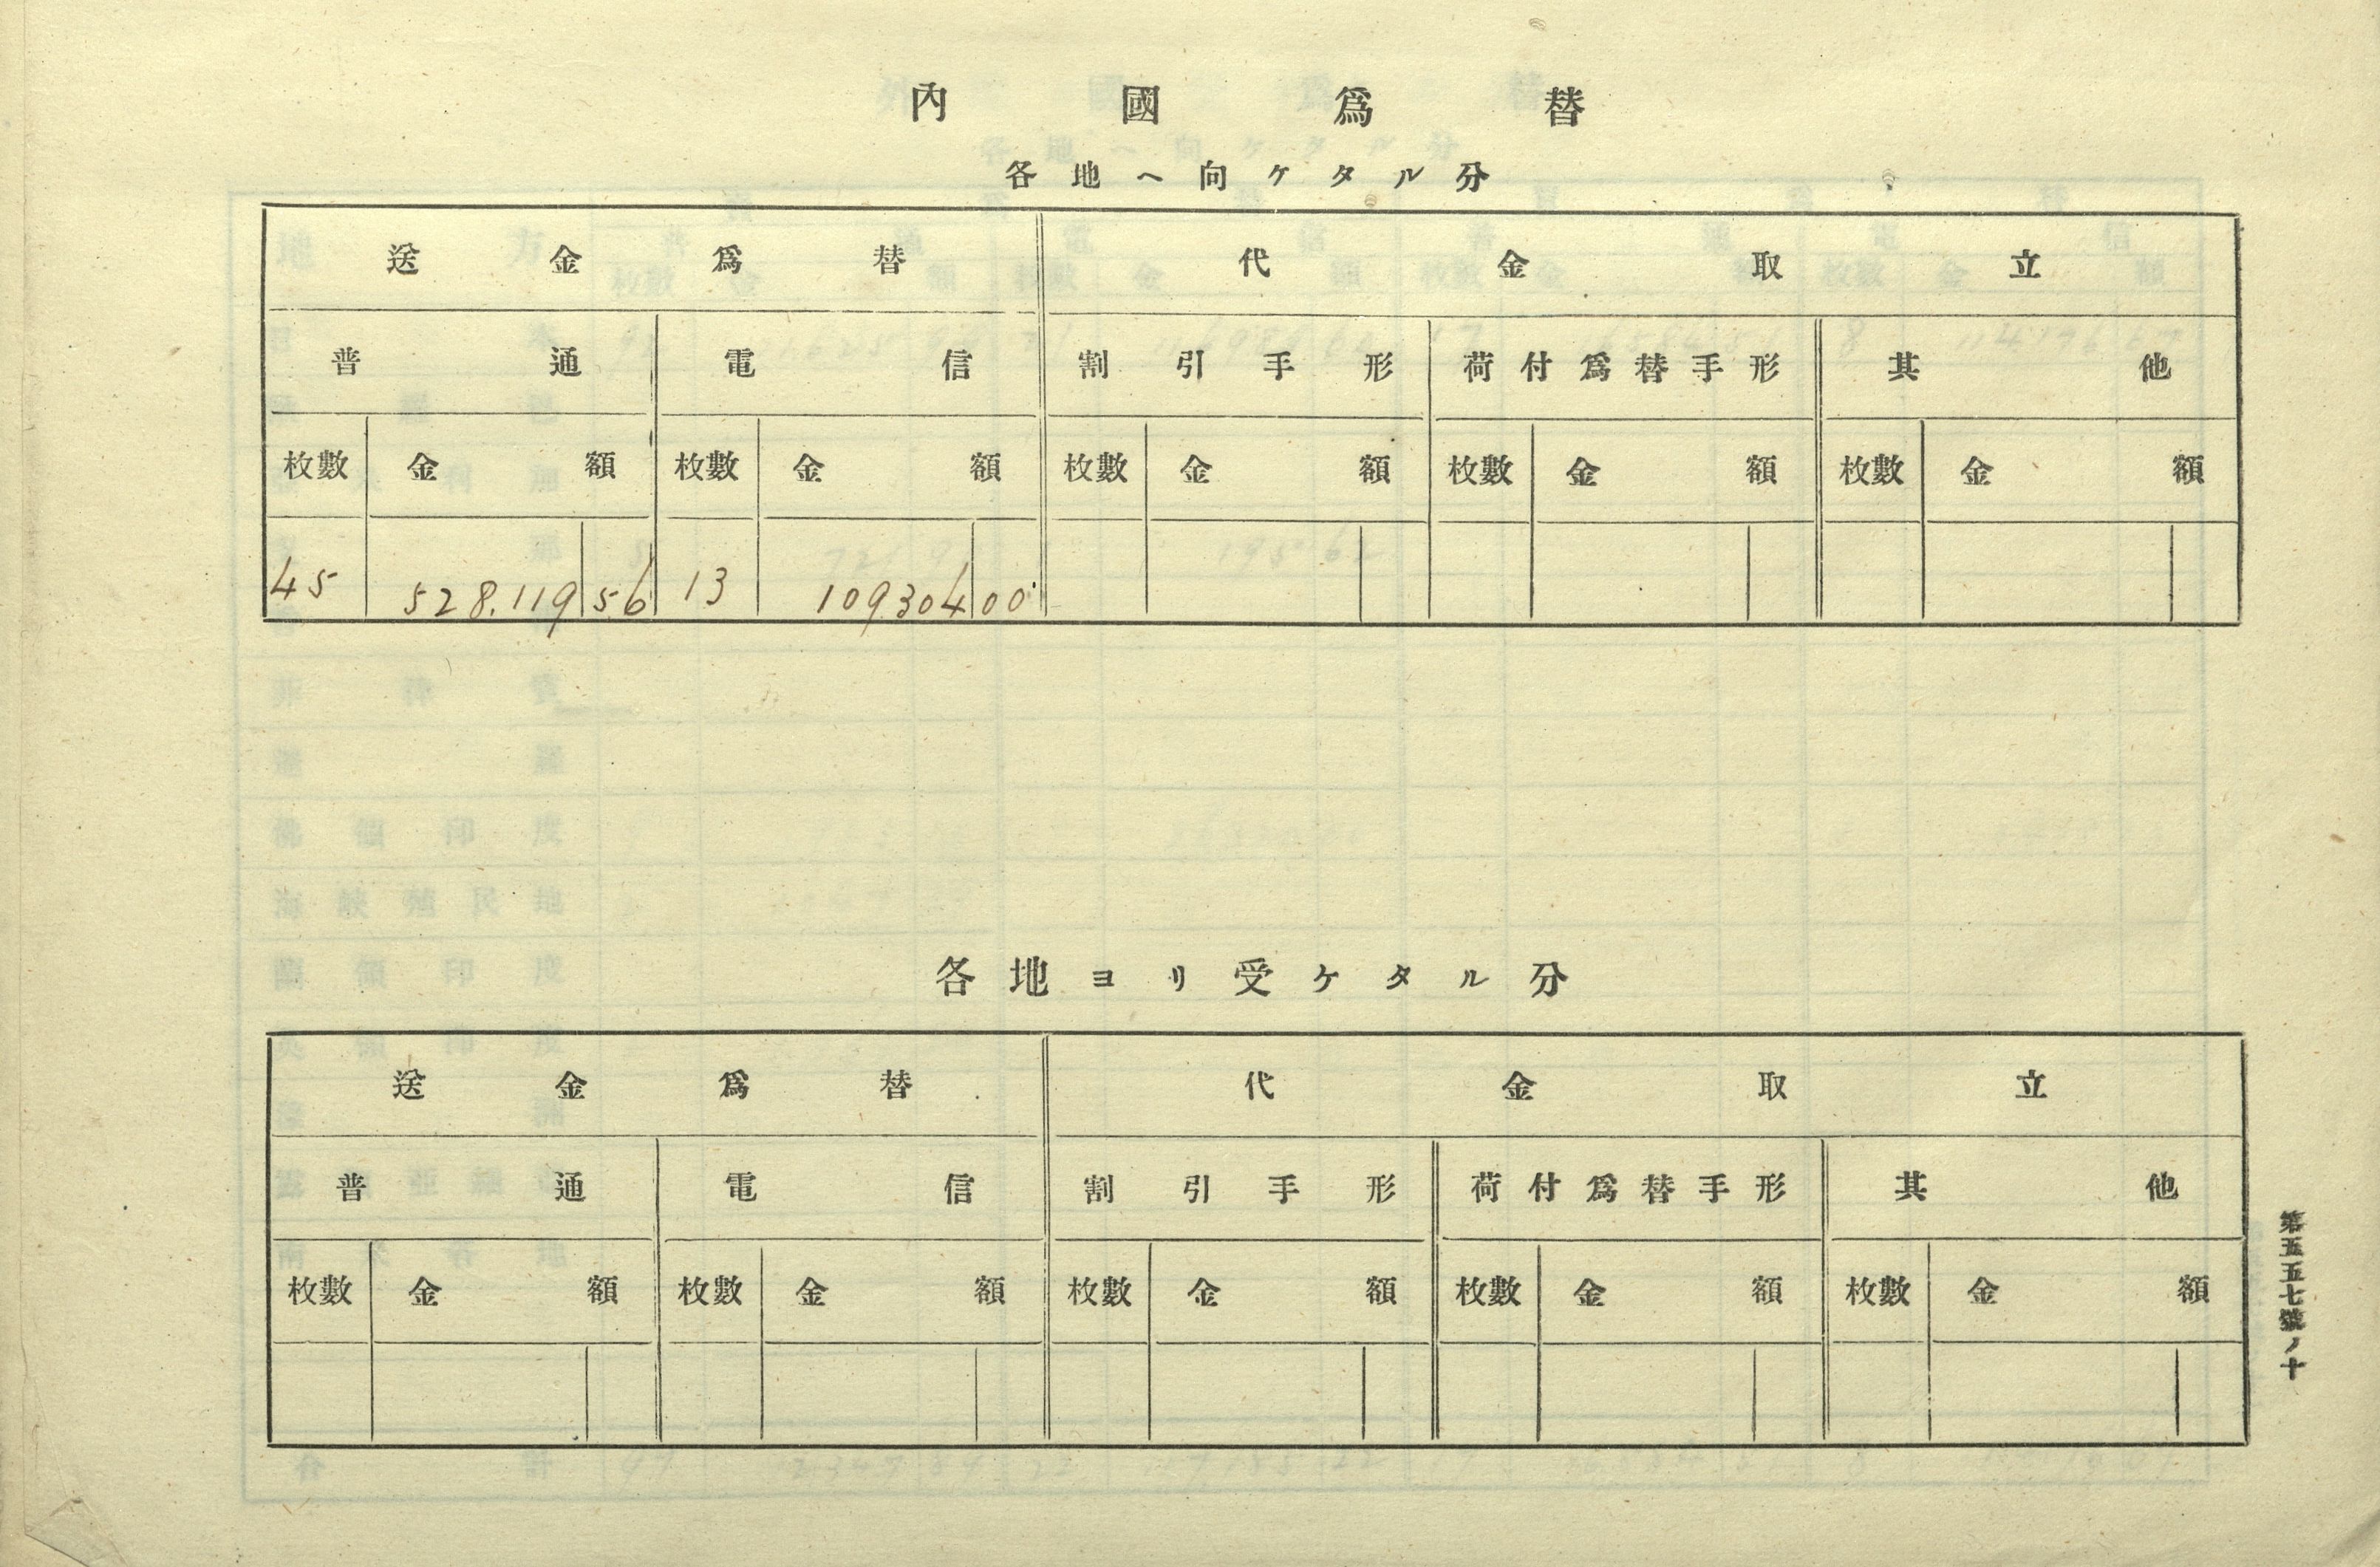 內國爲替
各地ヘ向ケタル分
送金爲替 代金取立
普通 電信 割引手形 荷付爲替手形 其他
枚數 金額 枚數 金額 枚數 金額 枚數 金額 枚數 金額
45 528.119 56 13 109304 00
各地ヨリ受ケタル分
送金爲替 代金取立
普通 電信 割引手形 荷付爲替手形 其他
枚數 金額 枚數 金額 枚數 金額 枚數 金額 枚數 金額
第五五七號ノ十